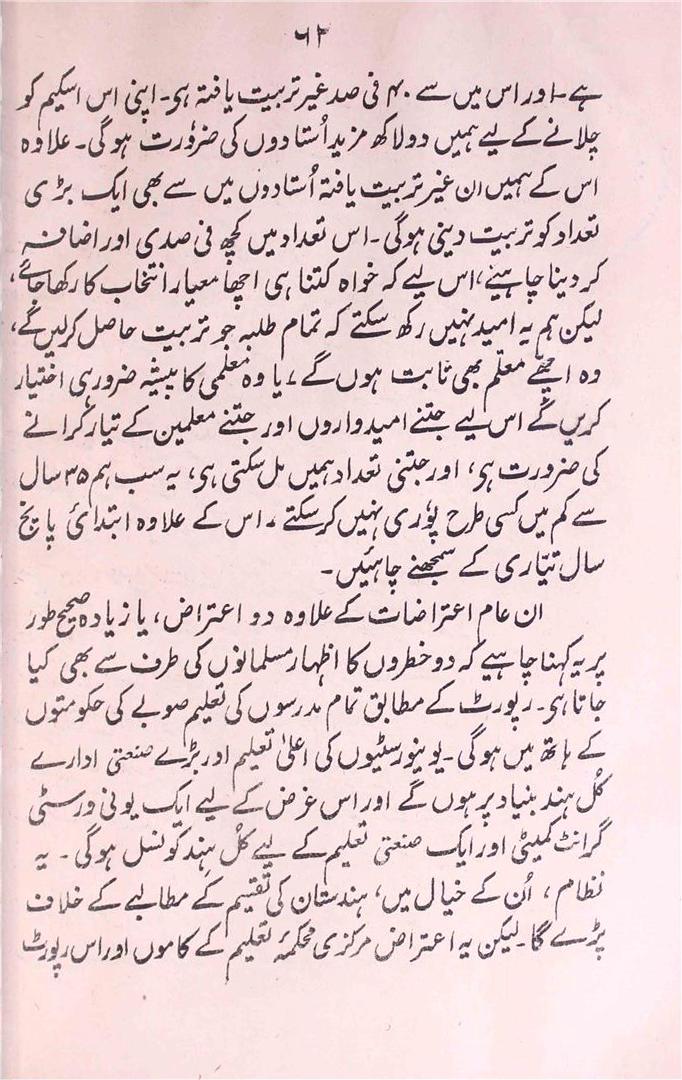 ۶۲
ہے۔ اور اس میں سے ۴۰ فی صد غیر تربیت یافتہ ہی۔ اپنی اس اسکیم کو
چلانے کے لیے ہمیں دو لاکھ مزید اُستادوں کی ضرورت ہوگی۔ علاوہ
اس کے ہمیں ان غیر تربیت یافتہ اُستادوں میں سے بھی ایک بڑی
تعداد کو تربیت دینی ہوگی۔ اس تعداد میں کچھ فی صدی اور اضافہ
کر دینا چاہیئے، اس لیے کہ خواہ کتنا ہی اچھا معیار انتخاب کا رکھا جائے،
لیکن ہم یہ امید نہیں رکھ سکتے کہ تمام طلبہ جو تربیت حاصل کرلیں گے،
وہ اچھے معلم بھی ثابت ہوں گے، یا وہ معلمی کا پیشہ ضرور ہی اختیار
کریں گے اس لیے جتنے امیدواروں اور جتنے معلمین کے تیار کرانے
کی ضرورت ہی، اور جتنی تعداد ہمیں مل سکتی ہی، یہ سب ہم ۳۵ سال
سے کم میں کسی طرح پوری نہیں کرسکتے، اس کے علاوہ ابتدائی پانچ
سال تیّاری کے سمجھنے چاہئیں۔
ان عام اعتراضات کے علاوہ دو اعتراض، یا زیادہ صحیح طور
پر یہ کہنا چاہیے کہ دو خطروں کا اظہار مسلمانوں کی طرف سے بھی کیا
جاتا ہی۔ رپورٹ کے مطابق تمام مدرسوں کی تعلیم صوبے کی حکومتوں
کے ہاتھ میں ہوگی۔ یونیورسٹیوں کی اعلیٰ تعلیم اور بڑے صنعتی ادارے
کُل ہند بنیاد پر ہوں گے اور اس غرض کے لیے ایک یونی ورسٹی
گرانٹ کمیٹی اور ایک صنعتی تعلیم کے لیے کُل ہِند کونسل ہوگی۔ یہ
نظام، اُن کے خیال میں، ہندستان کی تقسیم کے مطالبے کے خلاف
پڑے گا۔ لیکن یہ اعتراض مرکزی محکمۂ تعلیم کے کاموں اور اس رپورٹ